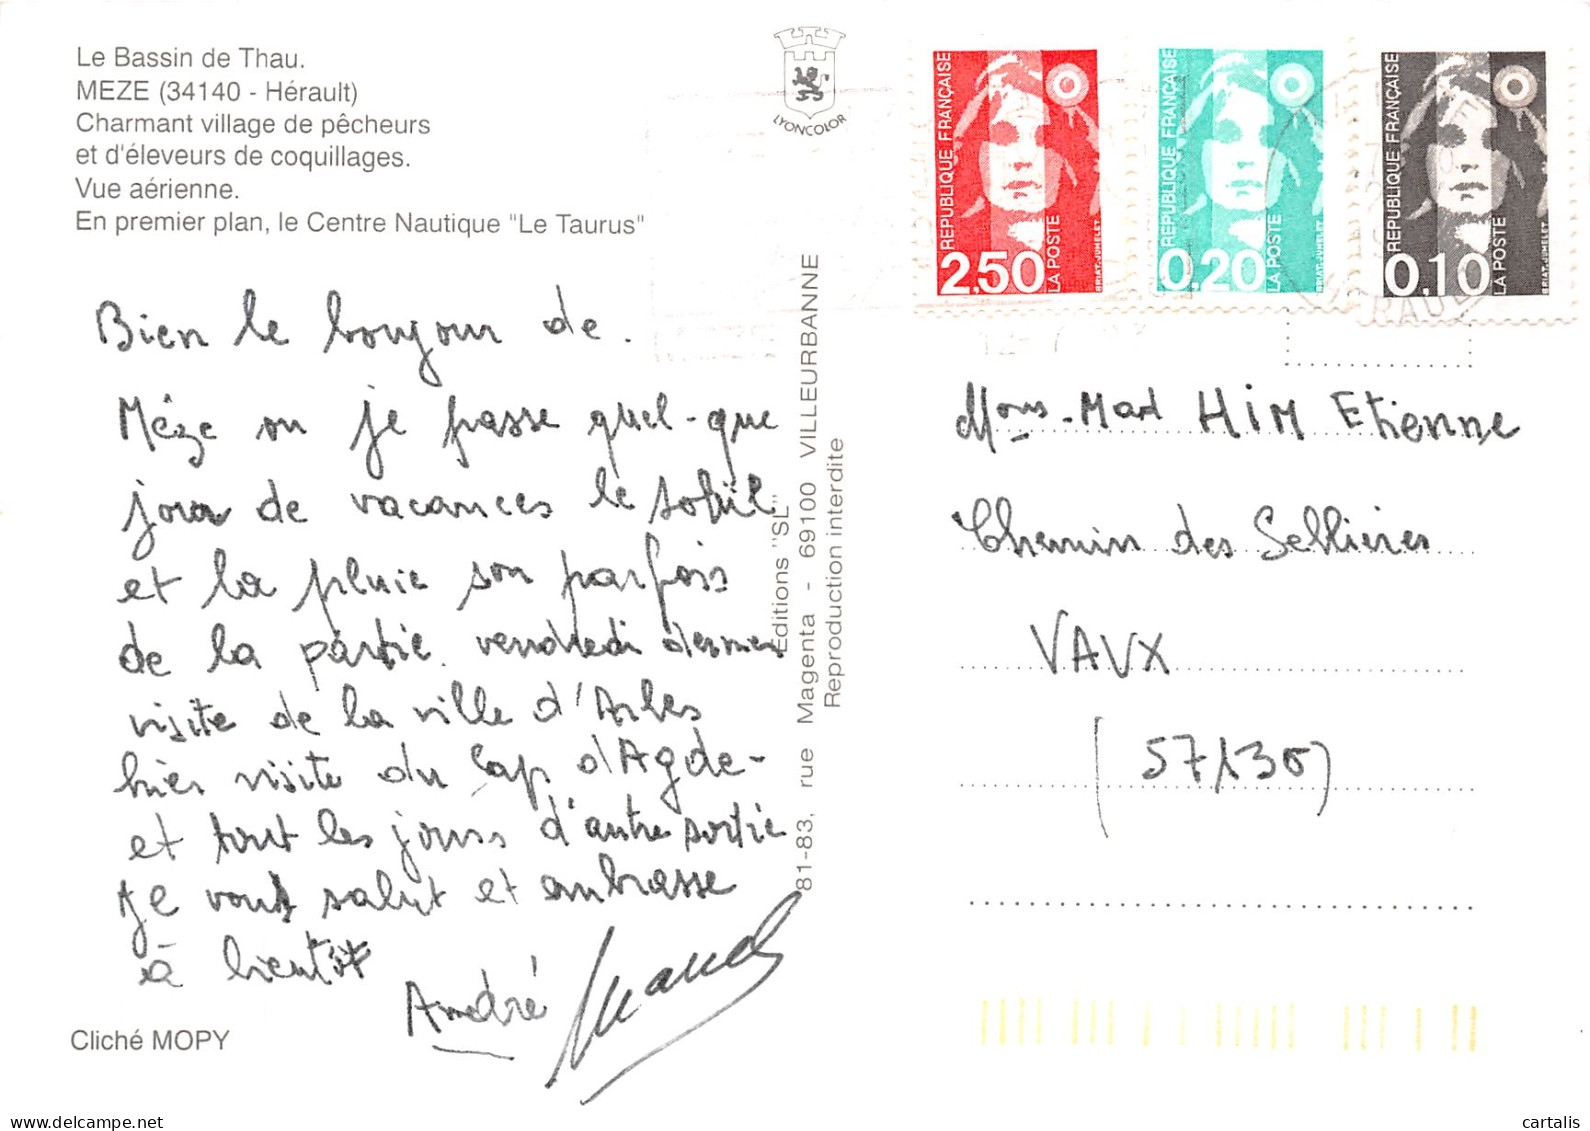 Le Bassin de Thau.
MEZE (34140 - Hérault)
Charmant village de pêcheurs
et d'éleveurs de coquillages.
Vue aérienne.
En premier plan, le Centre Nautique "Le Taurus"
LYONCOLOR
Bien le bonjour de.
Mèze ou je passe quel-que
jour de vacances le soleil
et la pluie son parfois
de la partie. vendredi dernier
visite de la ville d'Arles
hier visite du Cap d'Agde-
et tout les jours d'autre sortie
Je vous salut et embrasse
à bientôt
André
Cliché MOPY
Editions "SL"
81-83, rue Magenta - 69100 VILLEURBANNE
Reproduction interdite
REPUBLIQUE FRANÇAISE
2,50
LA POSTE
BRIAT-JUMELET
REPUBLIQUE FRANÇAISE
0,20
LA POSTE
BRIAT-JUMELET
REPUBLIQUE FRANÇAISE
0,10
LA POSTE
BRIAT-JUMELET
Mons-Mad HIM Etienne
Chemin des Sellieres
VAUX
(57130)
cartalis